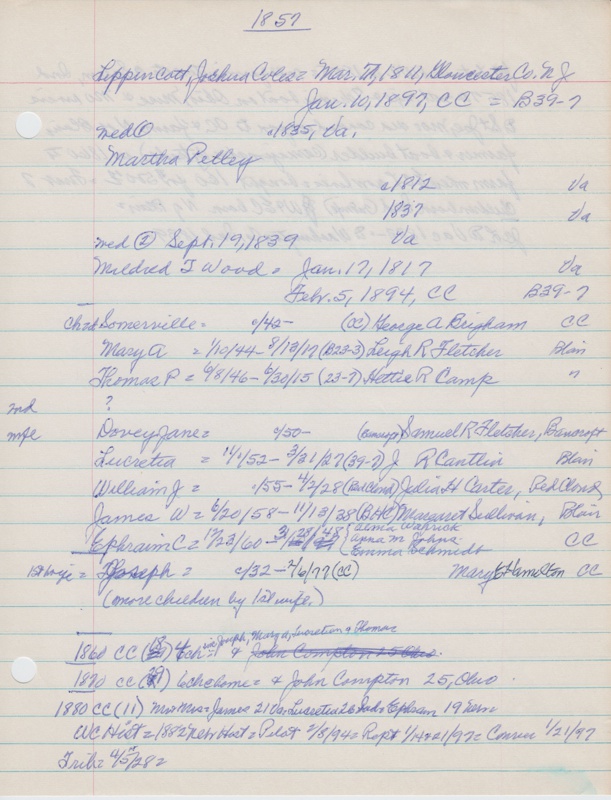 1857
Lippincott, Joshua Coles = Mar. 17, 1811, Gloucester Co. N J
Jan. 10, 1897, CC = B39-7
med ① c1835, Va.
Martha Petley
c1812 Va
1837 Va
med ② Sept. 19, 1839 Va
Mildred T Wood = Jan. 17, 1817 Va
Feb. 5, 1894, CC B39-7
Somerville = c/42- (CC) George A Brigham CC
Mary A = 1/10/44- 8/13/17 (B23-3) Leigh R Fletcher Blair
Thomas P = 9/8/46- 6/30/15 (23-7) Hettie R Camp "
md ?
Dovey Jane = c/50- Samuel R Fletcher, Bancroft
Lucretia = 11/1/52- 3/31/27 (39-7) J R Cantlin Blair
William J = c/55- 4/2/28 Julia H Carter, Red Cloud
James W = 6/20/58- 11/13/38 Margaret Sullivan, Blair
Ephraim C = 12/23/60- Anna M Johns CC
Emma Schmidt
1st wife = Joseph = c/32- 2/6/77 (CC) Mary Hamilton CC
(more children by 1st wife.)
Joseph, Mary A, Lucretia & Thomas
1860 CC 4 ch & John Compton 25 Ohio.
1870 CC 6 ch home = & John Compton 25, Ohio
1880 CC (11) James 21 Va. Lucretia 26 Ephraim 19 Neb
WC Hist = 1882 Neb Hist = Pilot 2/8/94 = Rept = Conver 1/21/97
Trib =